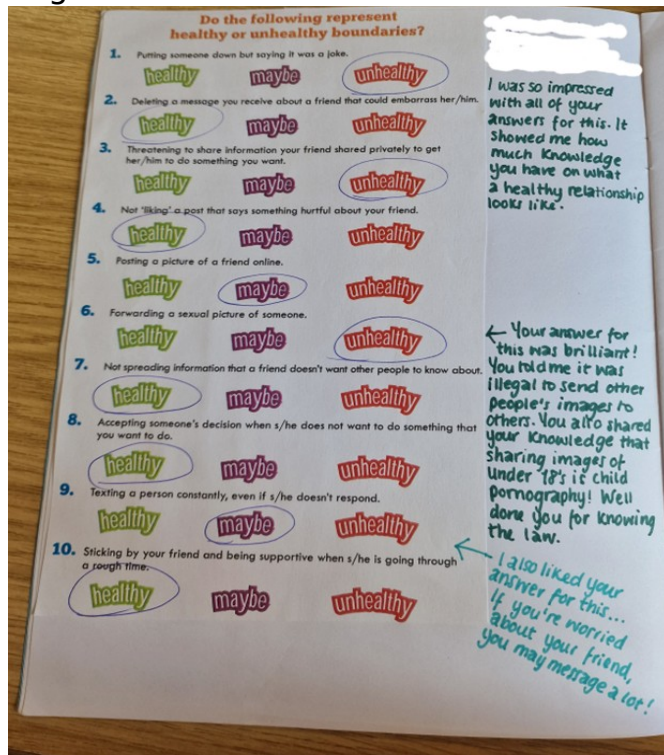 Do the following represent
healthy or unhealthy boundaries?
1. Putting someone down but saying it was a joke.
healthy maybe unhealthy
2. Deleting a message you receive about a friend that could embarrass her/him.
healthy maybe unhealthy
3. Threatening to share information your friend shared privately to get
her/him to do something you want.
healthy maybe unhealthy
4. Not "liking" a post that says something hurtful about your friend.
healthy maybe unhealthy
5. Posting a picture of a friend online.
healthy maybe unhealthy
6. Forwarding a sexual picture of someone.
healthy maybe unhealthy
7. Not spreading information that a friend doesn't want other people to know about.
healthy maybe unhealthy
8. Accepting someone's decision when s/he does not want to do something that
you want to do.
healthy maybe unhealthy
9. Texting a person constantly, even if s/he doesn't respond.
healthy maybe unhealthy
10. Sticking by your friend and being supportive when s/he is going through
a rough time.
healthy maybe unhealthy
I was so impressed
with all of your
answers for this. It
showed me how
much knowledge
you have on what
a healthy relationship
looks like.
Your answer for
this was brilliant!
You told me it was
illegal to send other
people's images to
others. You also shared
your knowledge that
sharing images of
under 18's is child
pornography! Well
done you for knowing
the law.
I also liked your
answer for this...
If you're worried
about your friend,
you may message a lot!